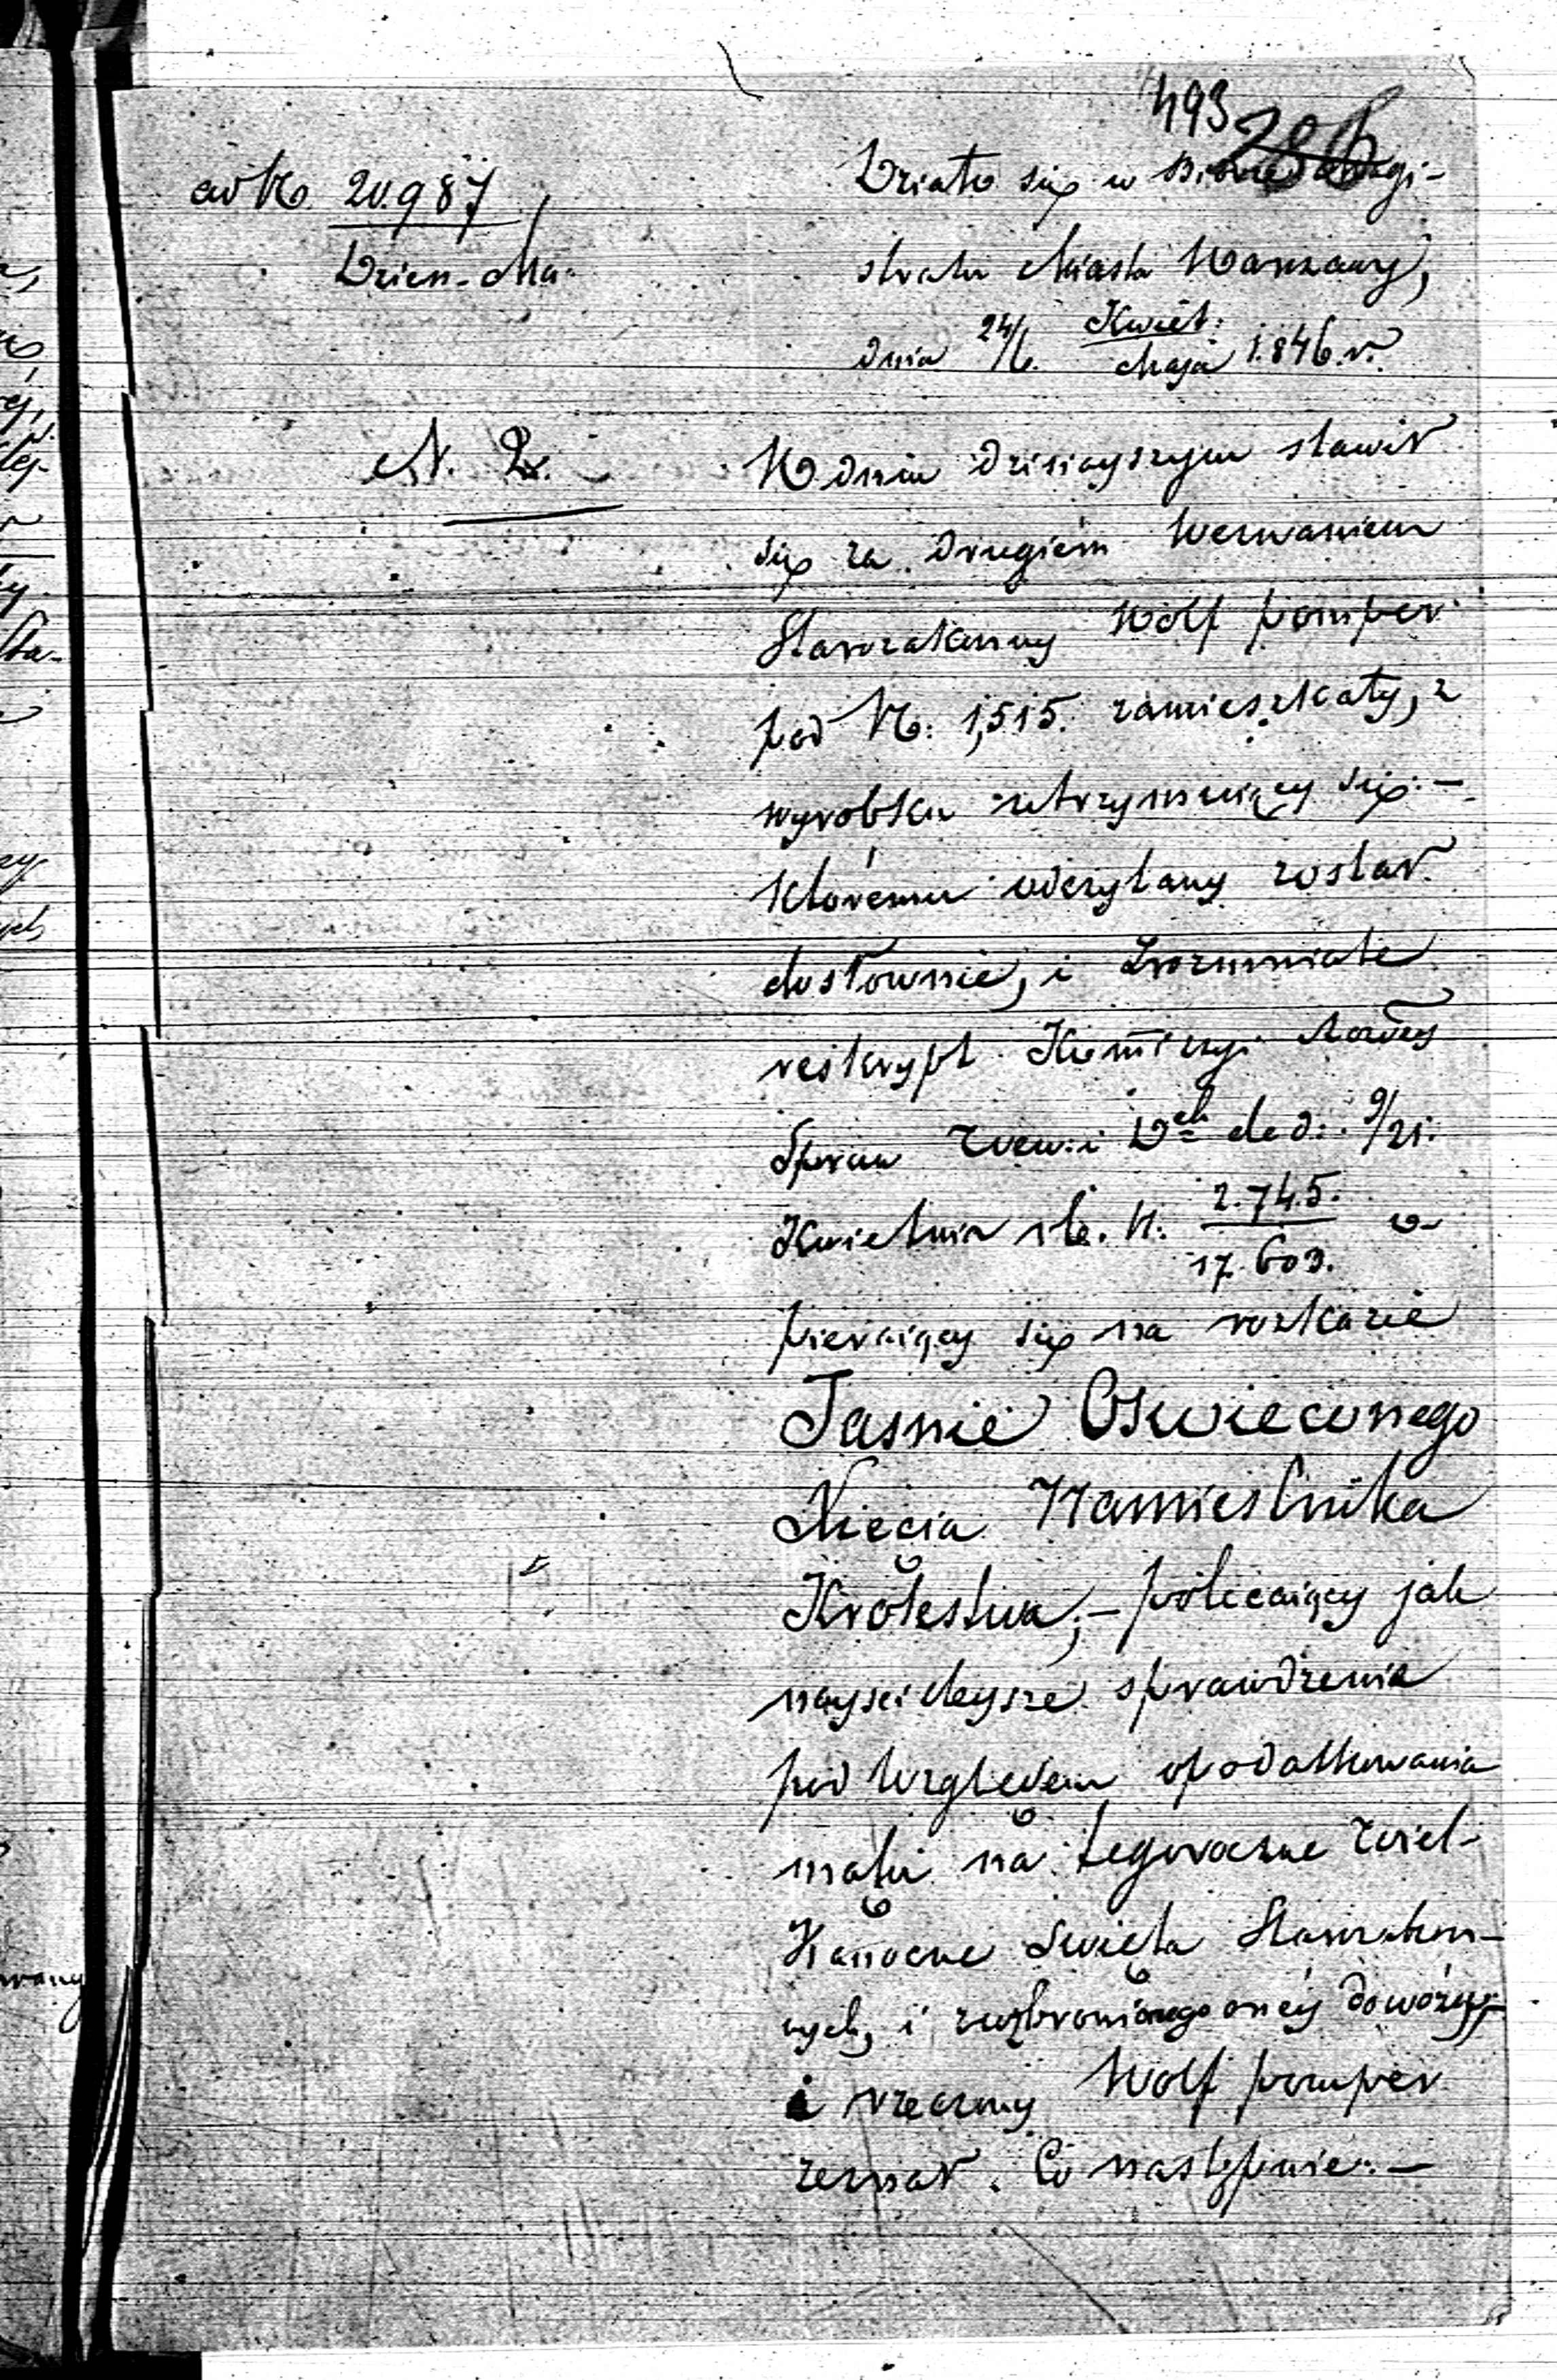 493
286
ad No. 20.987
Dzien. Ma.
Działo się w Biorze Magi-
stratu Miasta Warszawy,
dnia 24/6. Kwiet: Maja 1.846. r.
N. 2.
W dniu dzisieyszym stawił
się za drugiém Wezwaniem
Starozakonny Wolf pomper
pod No: 1,515. zamieszkały, z
wyrobku utrzymuiący się. —
któremu odczytany został
dosłownie, i zrozumiale
reskrypt Kommissyi Rowéy
Spraw Wew: i Dch de d: 9/21.
Kwietnia rb. N. 2.745./17.603. o-
pieraiący się na rozkazie
Jasnie Oswieconego
Xięcia Namiestnika
Królestwa, — polecaiący jak
nayscisleysze sprawdzenia
pod względem opodatkowania
mąki na tegoroczne wiel-
kanocne Swięta Starozakon-
nych, i zabronionego onéy dowozu,
i rzeczony Wolf pomper
zeznał. Co następuie: —
wany